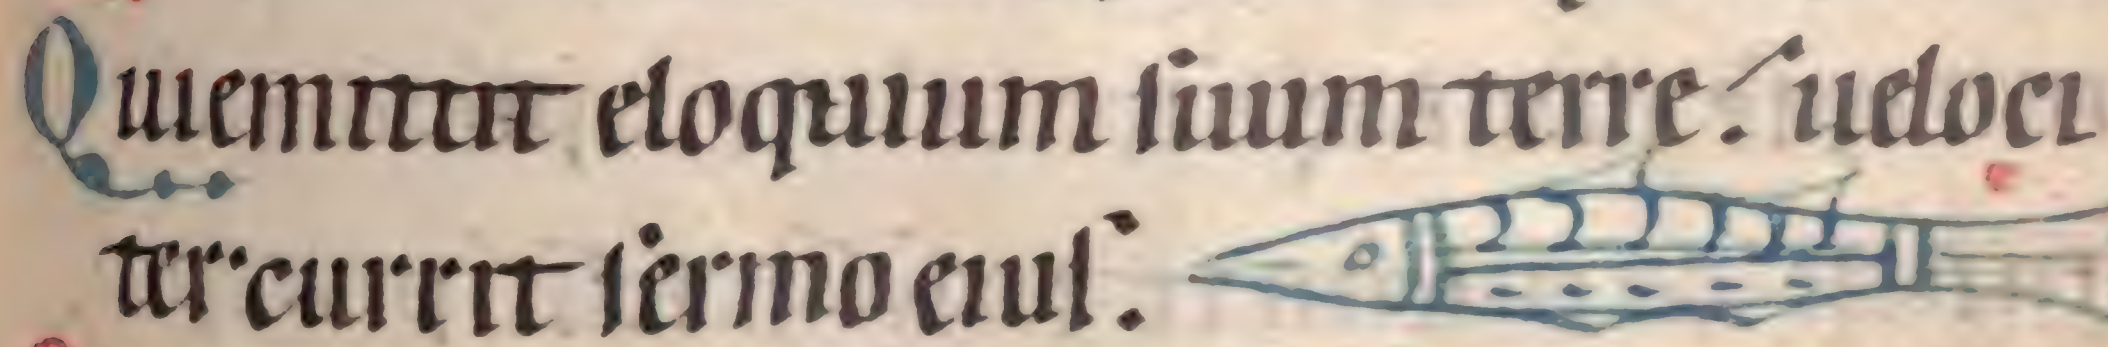 Qui emittit eloquium suum terre: ueloci
ter currit sermo eius.